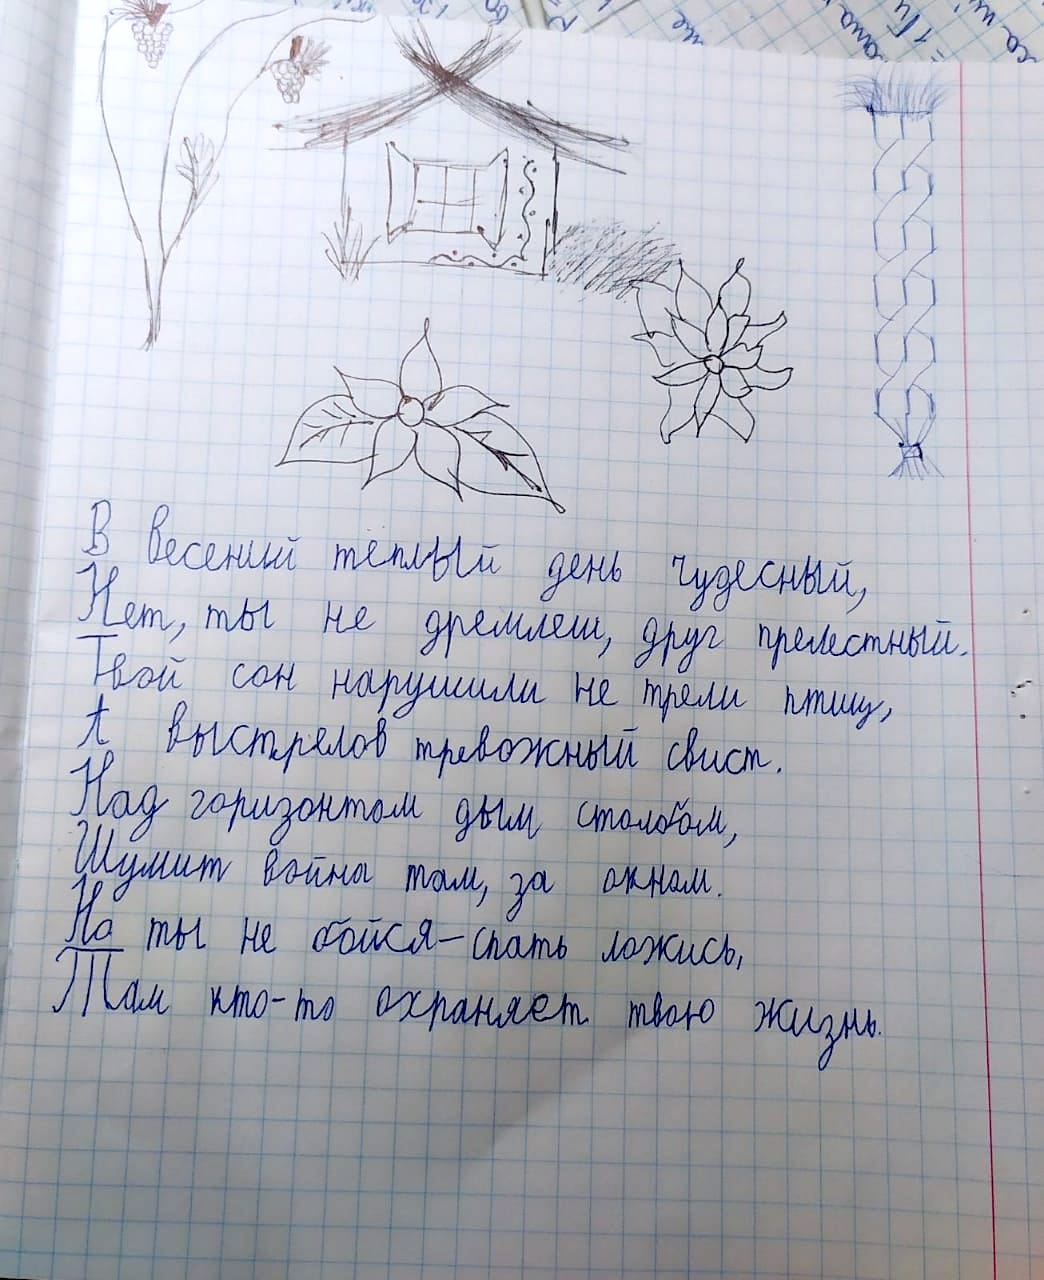 В весений тёплый день чудесный,
Нет, ты не дремлеш, друг прелестный.
Твой сон нарушили не трели птиц,
А выстрелов тревожный свист.
Над горизонтом дым столбом,
Шумит война там, за окном.
Но ты не бойся-спать ложись,
Там кто-то охраняет твою жизнь.